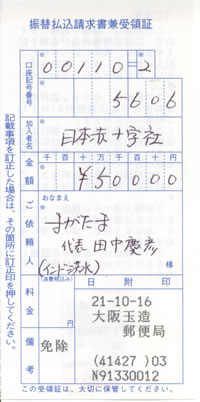 振替払込請求書兼受領証
口座記号番号
00110=2
5606
加入者名
日本赤十字社
金額
千 百 十 万 千 百 十 円
¥50000
おなまえ
ご依頼人
まがたま
代表 田中慶彦
(インド洪水)
様
料金
(消費税込み)
円
日附印
21-10-16
大阪玉造
郵便局
備考
免除
(41427 )03
N91330012
記載事項を訂正した場合は、その箇所に訂正印を押してください。
この受領証は、大切に保管してください。